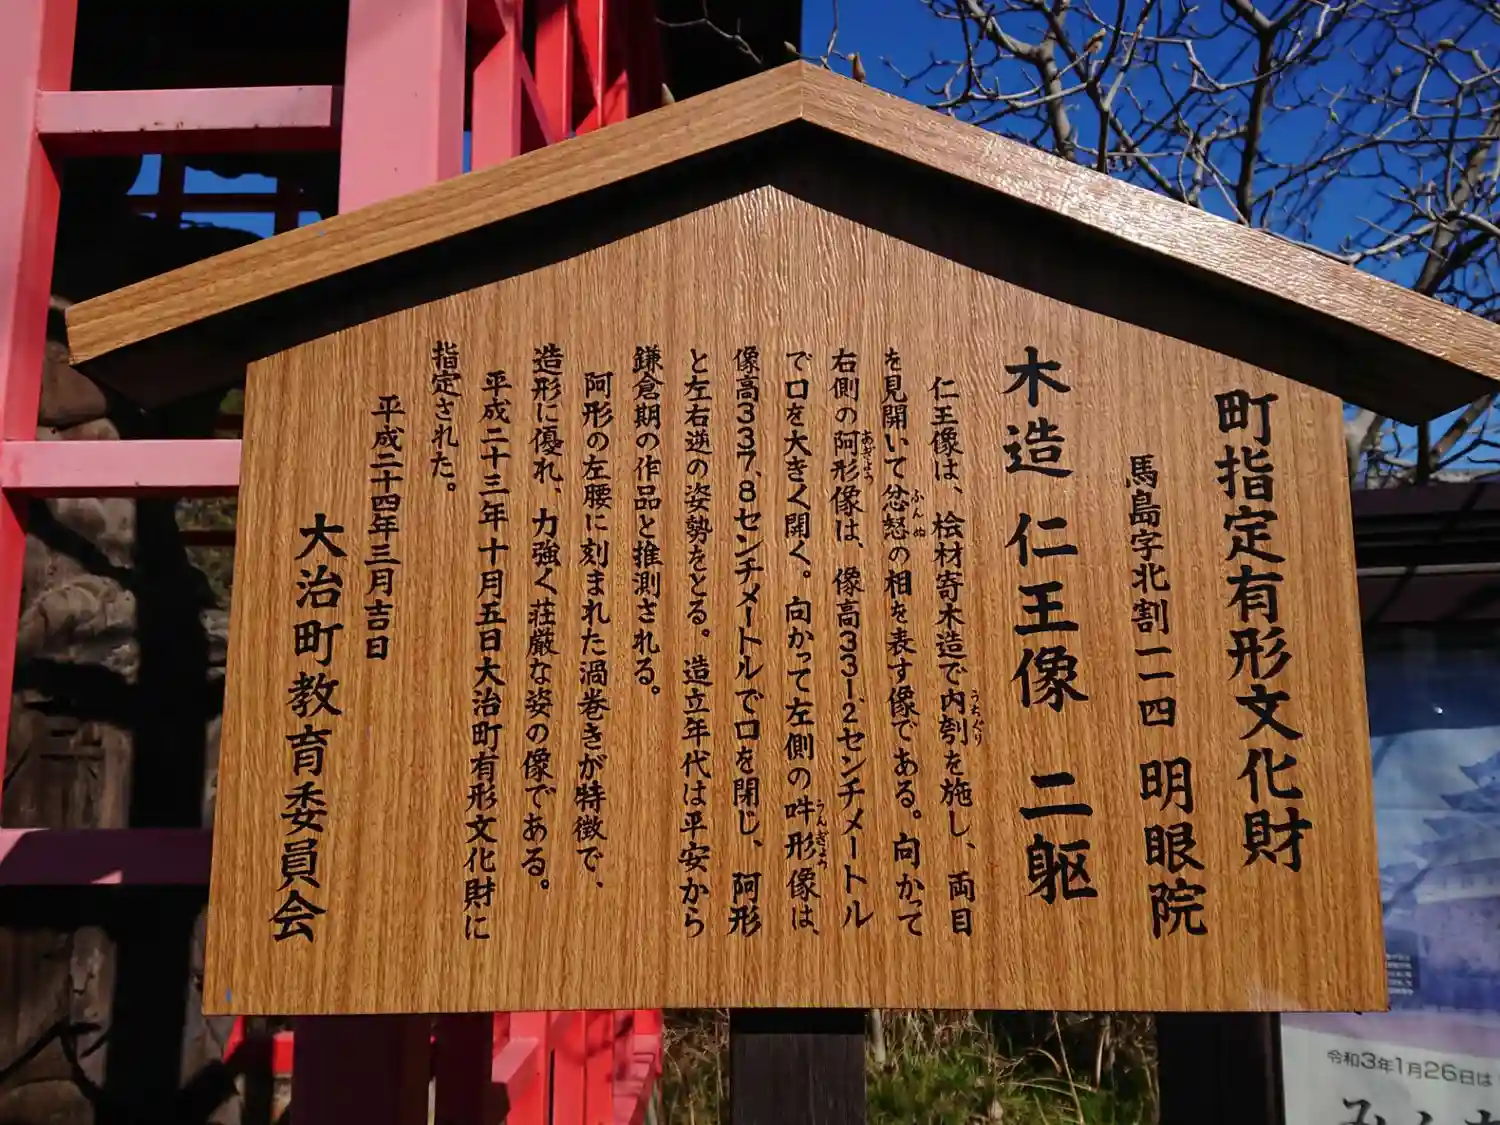 町指定有形文化財
馬島字北割一二四 明眼院
木造 仁王像 二躯
仁王像は、桧材寄木造で内刳を施し、両目
うちぐり
を見開いて忿怒の相を表す像である。向かって
ふんぬ
右側の阿形像は、像高331.2センチメートル
あぎょう
で口を大きく開く。向かって左側の吽形像は、
うんぎょう
像高337.8センチメートルで口を閉じ、阿形
と左右逆の姿勢をとる。造立年代は平安から
鎌倉期の作品と推測される。
阿形の左腰に刻まれた渦巻きが特徴で、
造形に優れ、力強く荘厳な姿の像である。
平成二十三年十月五日大治町有形文化財に
指定された。
平成二十四年三月吉日
大治町教育委員会
令和3年1月26日は